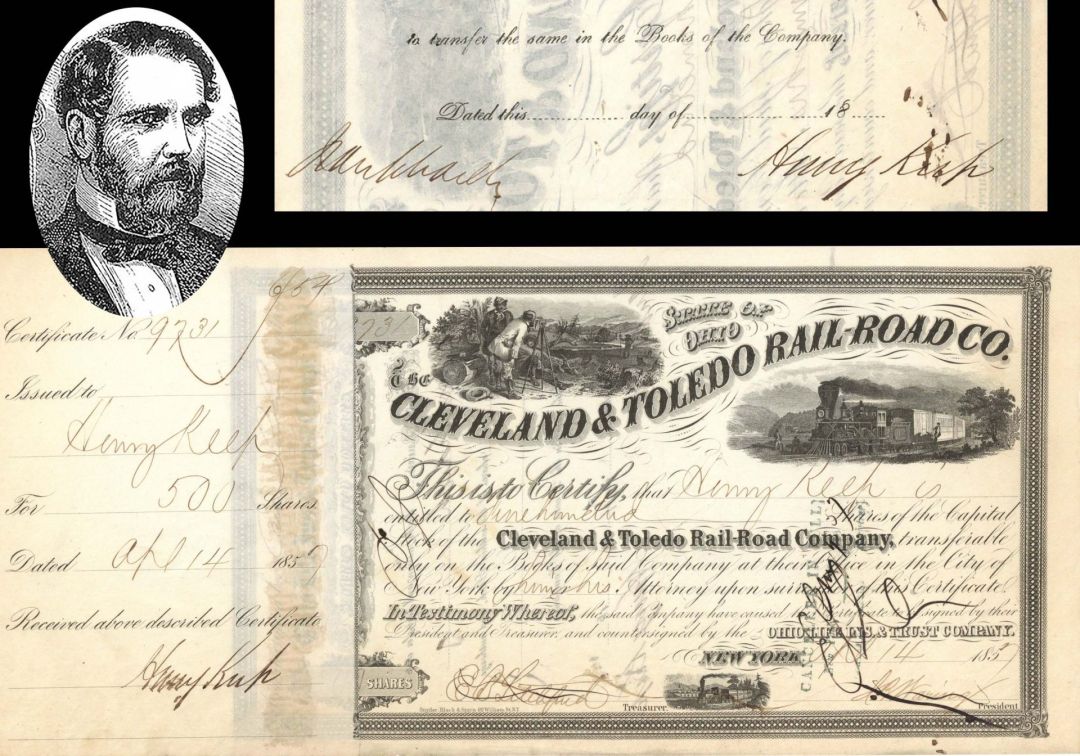 to transfer the same in the Books of the Company.
Dated this day of 18
Henry Keep
654
Certificate No. 9731
Issued to
Henry Keep
For 500 Shares
Dated Apl 14 1857
Received above described Certificate
Henry Keep
9731
STATE OF
OHIO
THE
CLEVELAND & TOLEDO RAIL-ROAD CO.
This is to Certify, that Henry Keep is
entitled to Shares of the Capital
Stock of the Cleveland & Toledo Rail-Road Company, transferable
only on the Books of said Company at their Office in the City of
New York by him or his Attorney upon surrender of this Certificate.
In Testimony Whereof, the said Company have caused this Certificate to be signed by their
President and Treasurer, and countersigned by the OHIO LIFE INS. & TRUST COMPANY.
NEW YORK 14 1857
SHARES
Treasurer. President
Snyder Black & Sturn 92 William St. N.Y.